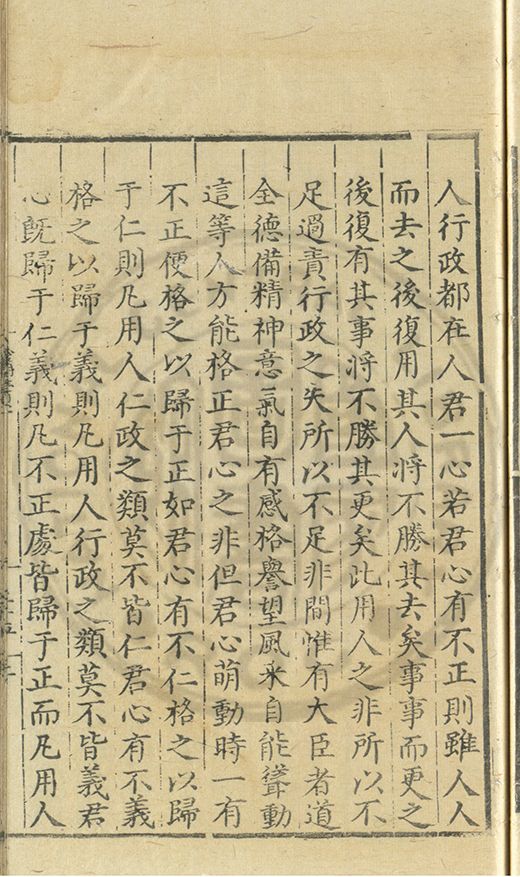 人行政都在人君一心若君心有不正則雖人人
而去之後復用其人將不勝其去矣事事而更之
後復有其事將不勝其更矣此用人之非所以不
足過責行政之失所以不足非間惟有大臣者道
全德備精神意氣自有感格譽望風采自能聳動
這等人方能格正君心之非但君心萌動時一有
不正便格之以歸于正如君心有不仁格之以歸
于仁則凡用人仁政之類莫不皆仁君心有不義
格之以歸于義則凡用人行政之類莫不皆義君
心旣歸于仁義則凡不正處皆歸于正而凡用人